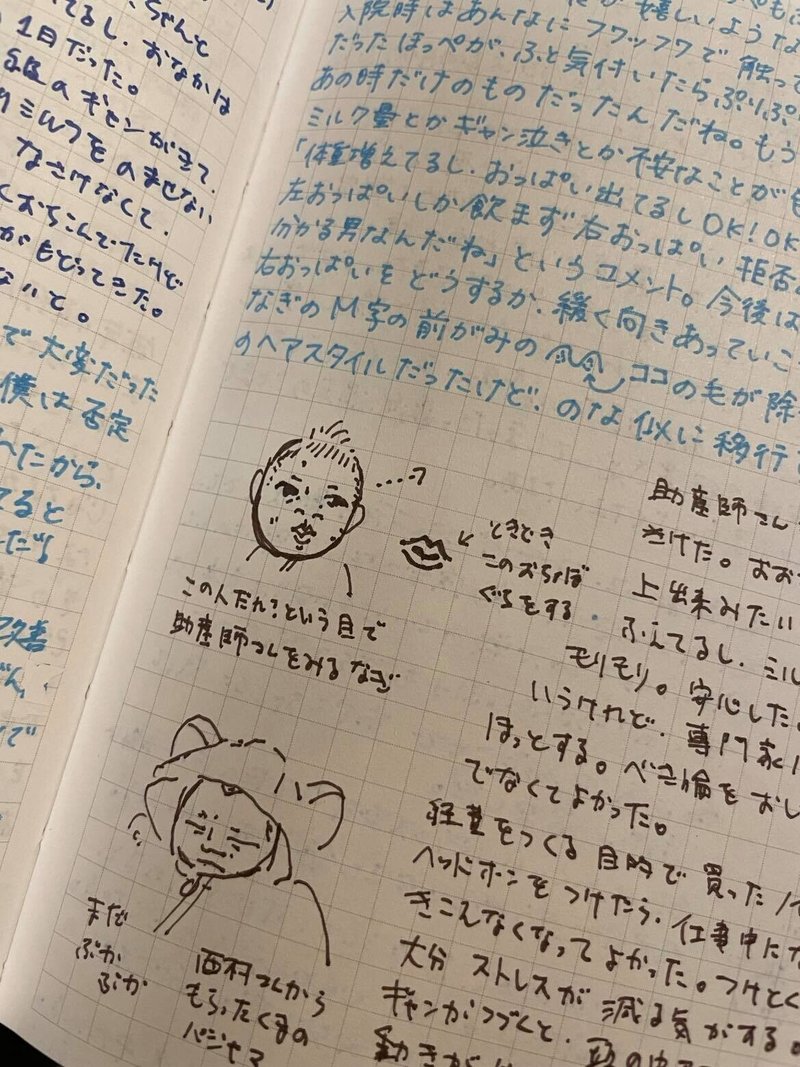 てるし、おなかは
1日だった。
ギャンがきて、
ミルクをのませない
なさけなくて、
くおちこんでたけど
がもどってきた。
ないと。
で大変だった
僕は否定
へたから、
てると
入院時はあんなにフワッフワで触って
だったほっぺが、ふと気付いたらぷりぷり
あの時だけのものだったんだね。もう
ミルク量とかギャン泣きとか不安なことが
「体重増えてるし、おっぱい出てるしOK!OK
左おっぱいしか飲まず右おっぱい拒否
分かる男なんだね」というコメント。今後は
右おっぱいをどうするか、緩く向きあっていこ
なぎのM字の前がみの ココの毛が除
のヘアスタイルだったけど、のな似に移行
ときどき
このおちょぼ
ぐちをする
この人だれ?という目で
助産師さんをみるなぎ
助産師さん
きけた。
上出来みたい
ふえてるし、ミル
モリモリ。安心した。
いうけれど、専門家に
ほっとする。べき論をおし
でなくてよかった。
経費をつくる目的で買った
ヘッドホンをつけたら、仕事中に
きこえなくなってよかった。つけとく
大分ストレスが減る気がする。
ギャンがつづくと、
動きが
まだ
ぶか
ぶか
西村さんから
もらったくまの
パジャマ